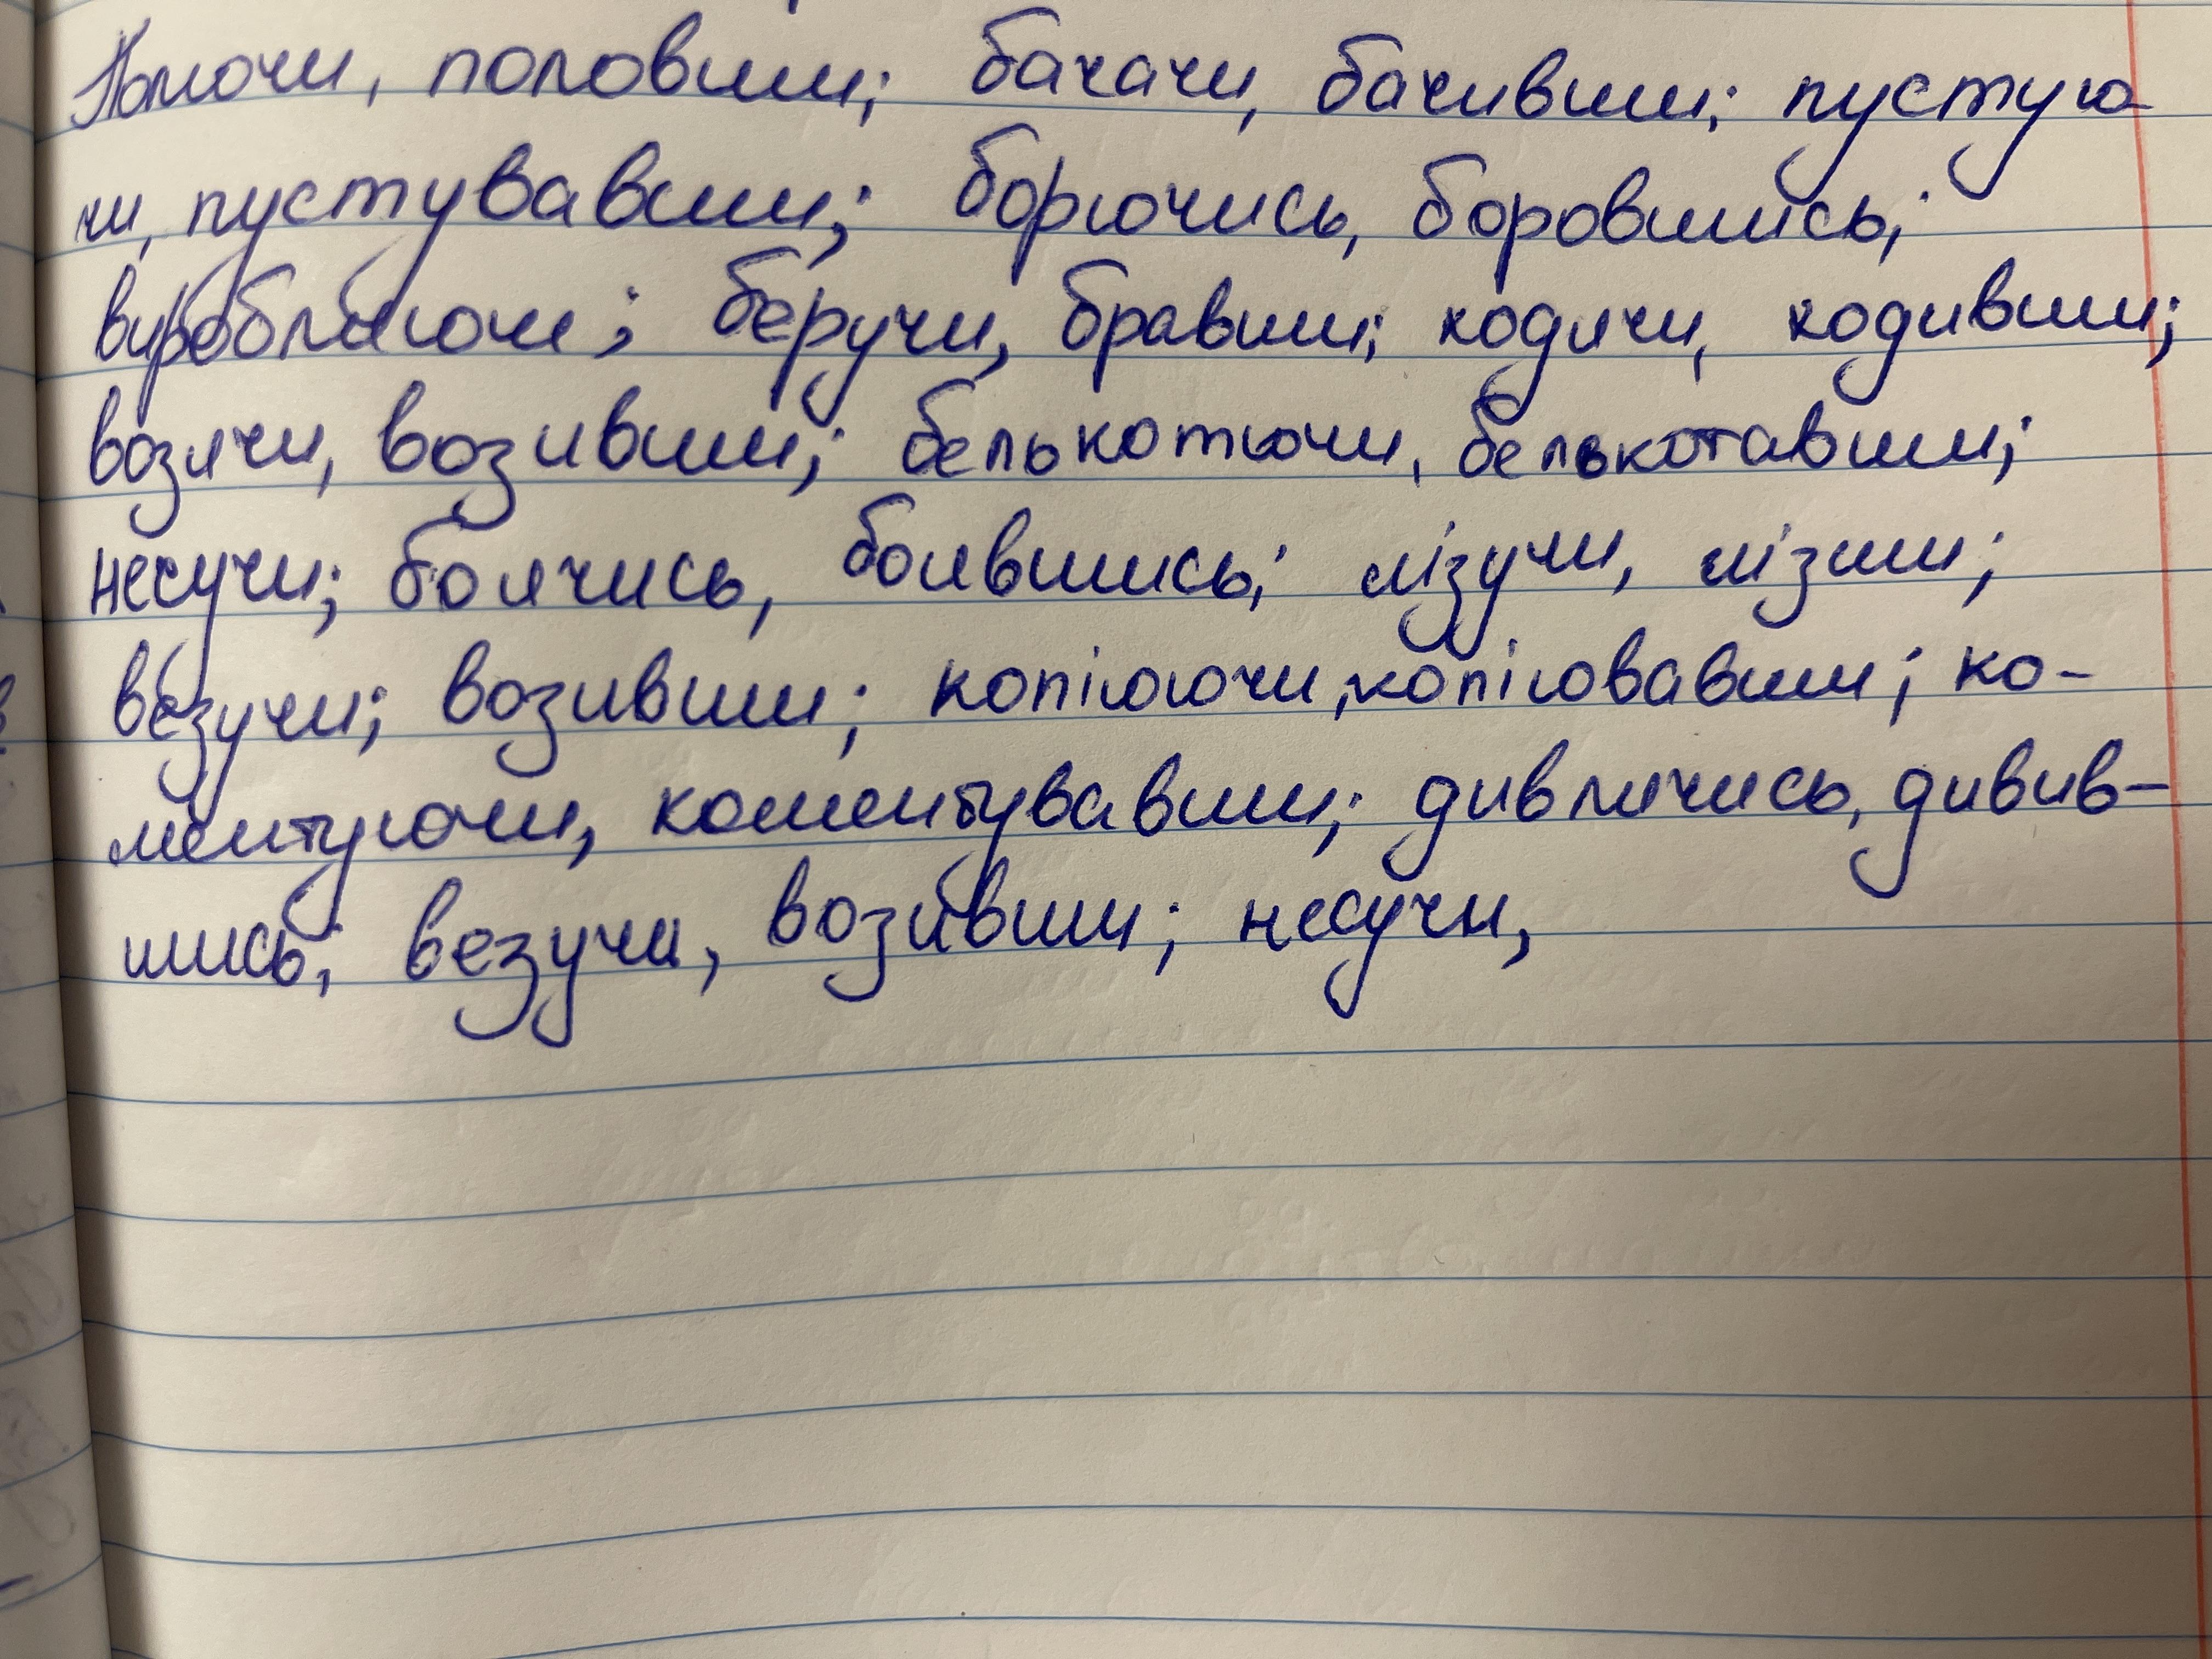 Полючи, половши; бачачи, бачивши; пустую-
чи, пустувавши; борючись, боровшись;
виробляючи; беручи, бравши; ходячи, ходивши;
возячи, возивши; белькотючи, белькотавши;
несучи; боячись, боявшись; лізучи, лізши;
везучи; возивши; копіюючи, копіювавши; ко-
ментуючи, коментувавши; дивлячись, дивив-
шись; везучи, возивши; несучи,